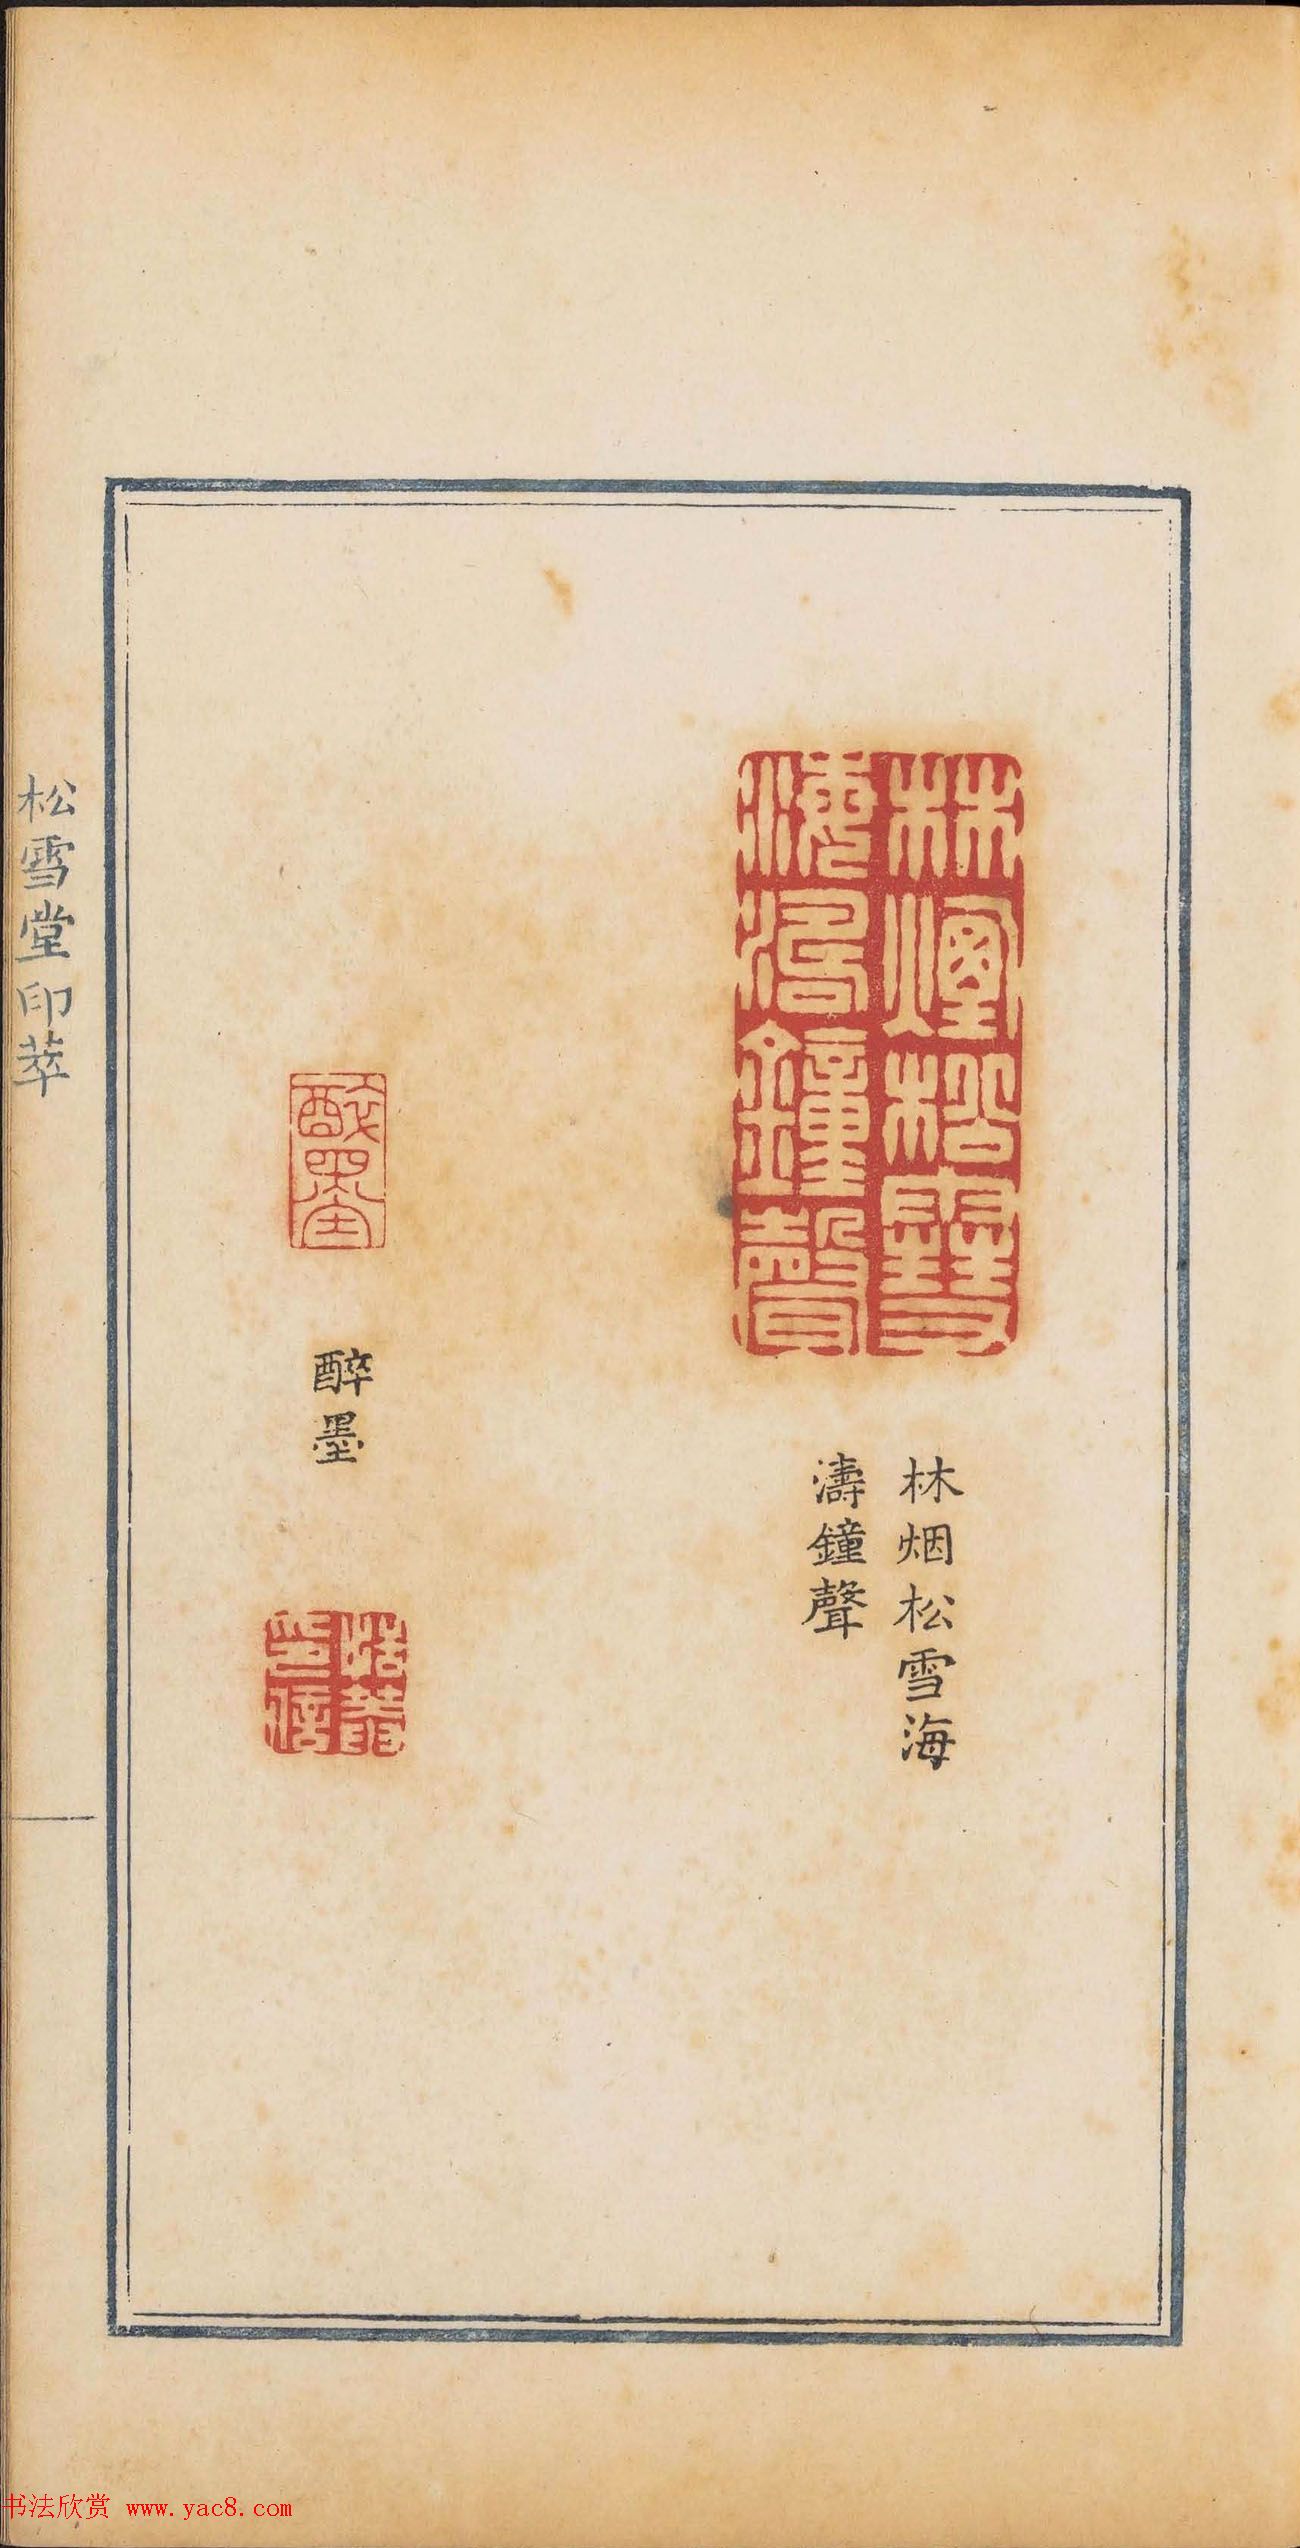 林煙松雪
海濤鐘聲
林烟松雪海
濤鐘聲
醉墨
醉墨
松雪堂印萃
书法欣赏 www.yac8.com